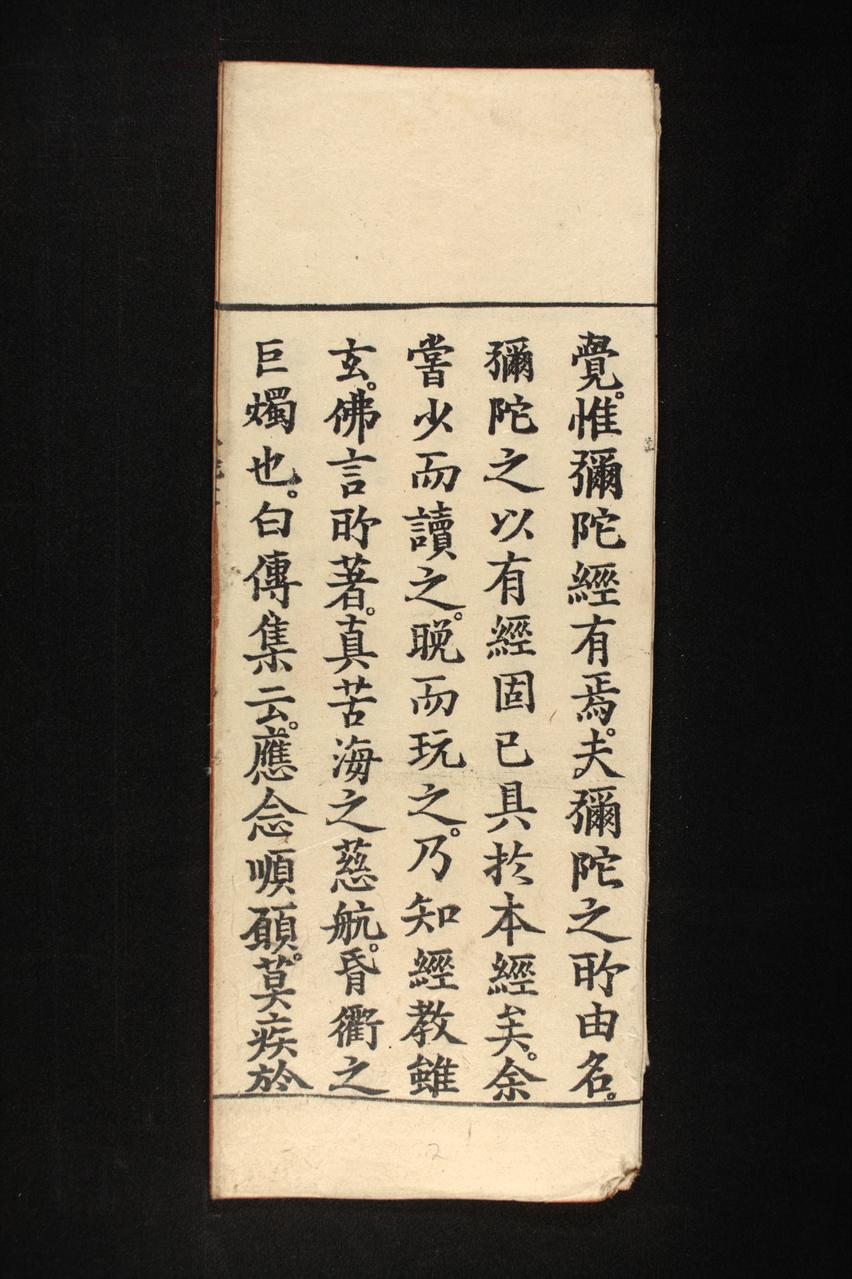 覺。惟彌陀經有焉。夫彌陀之所由名。
彌陀之以有經固已具扵本經矣。余
嘗少而讀之。晩而玩之。乃知經教雖
玄。佛言所著。真苦海之慈航。昏衢之
巨燭也。白傳集云。應念順願。莫疾於